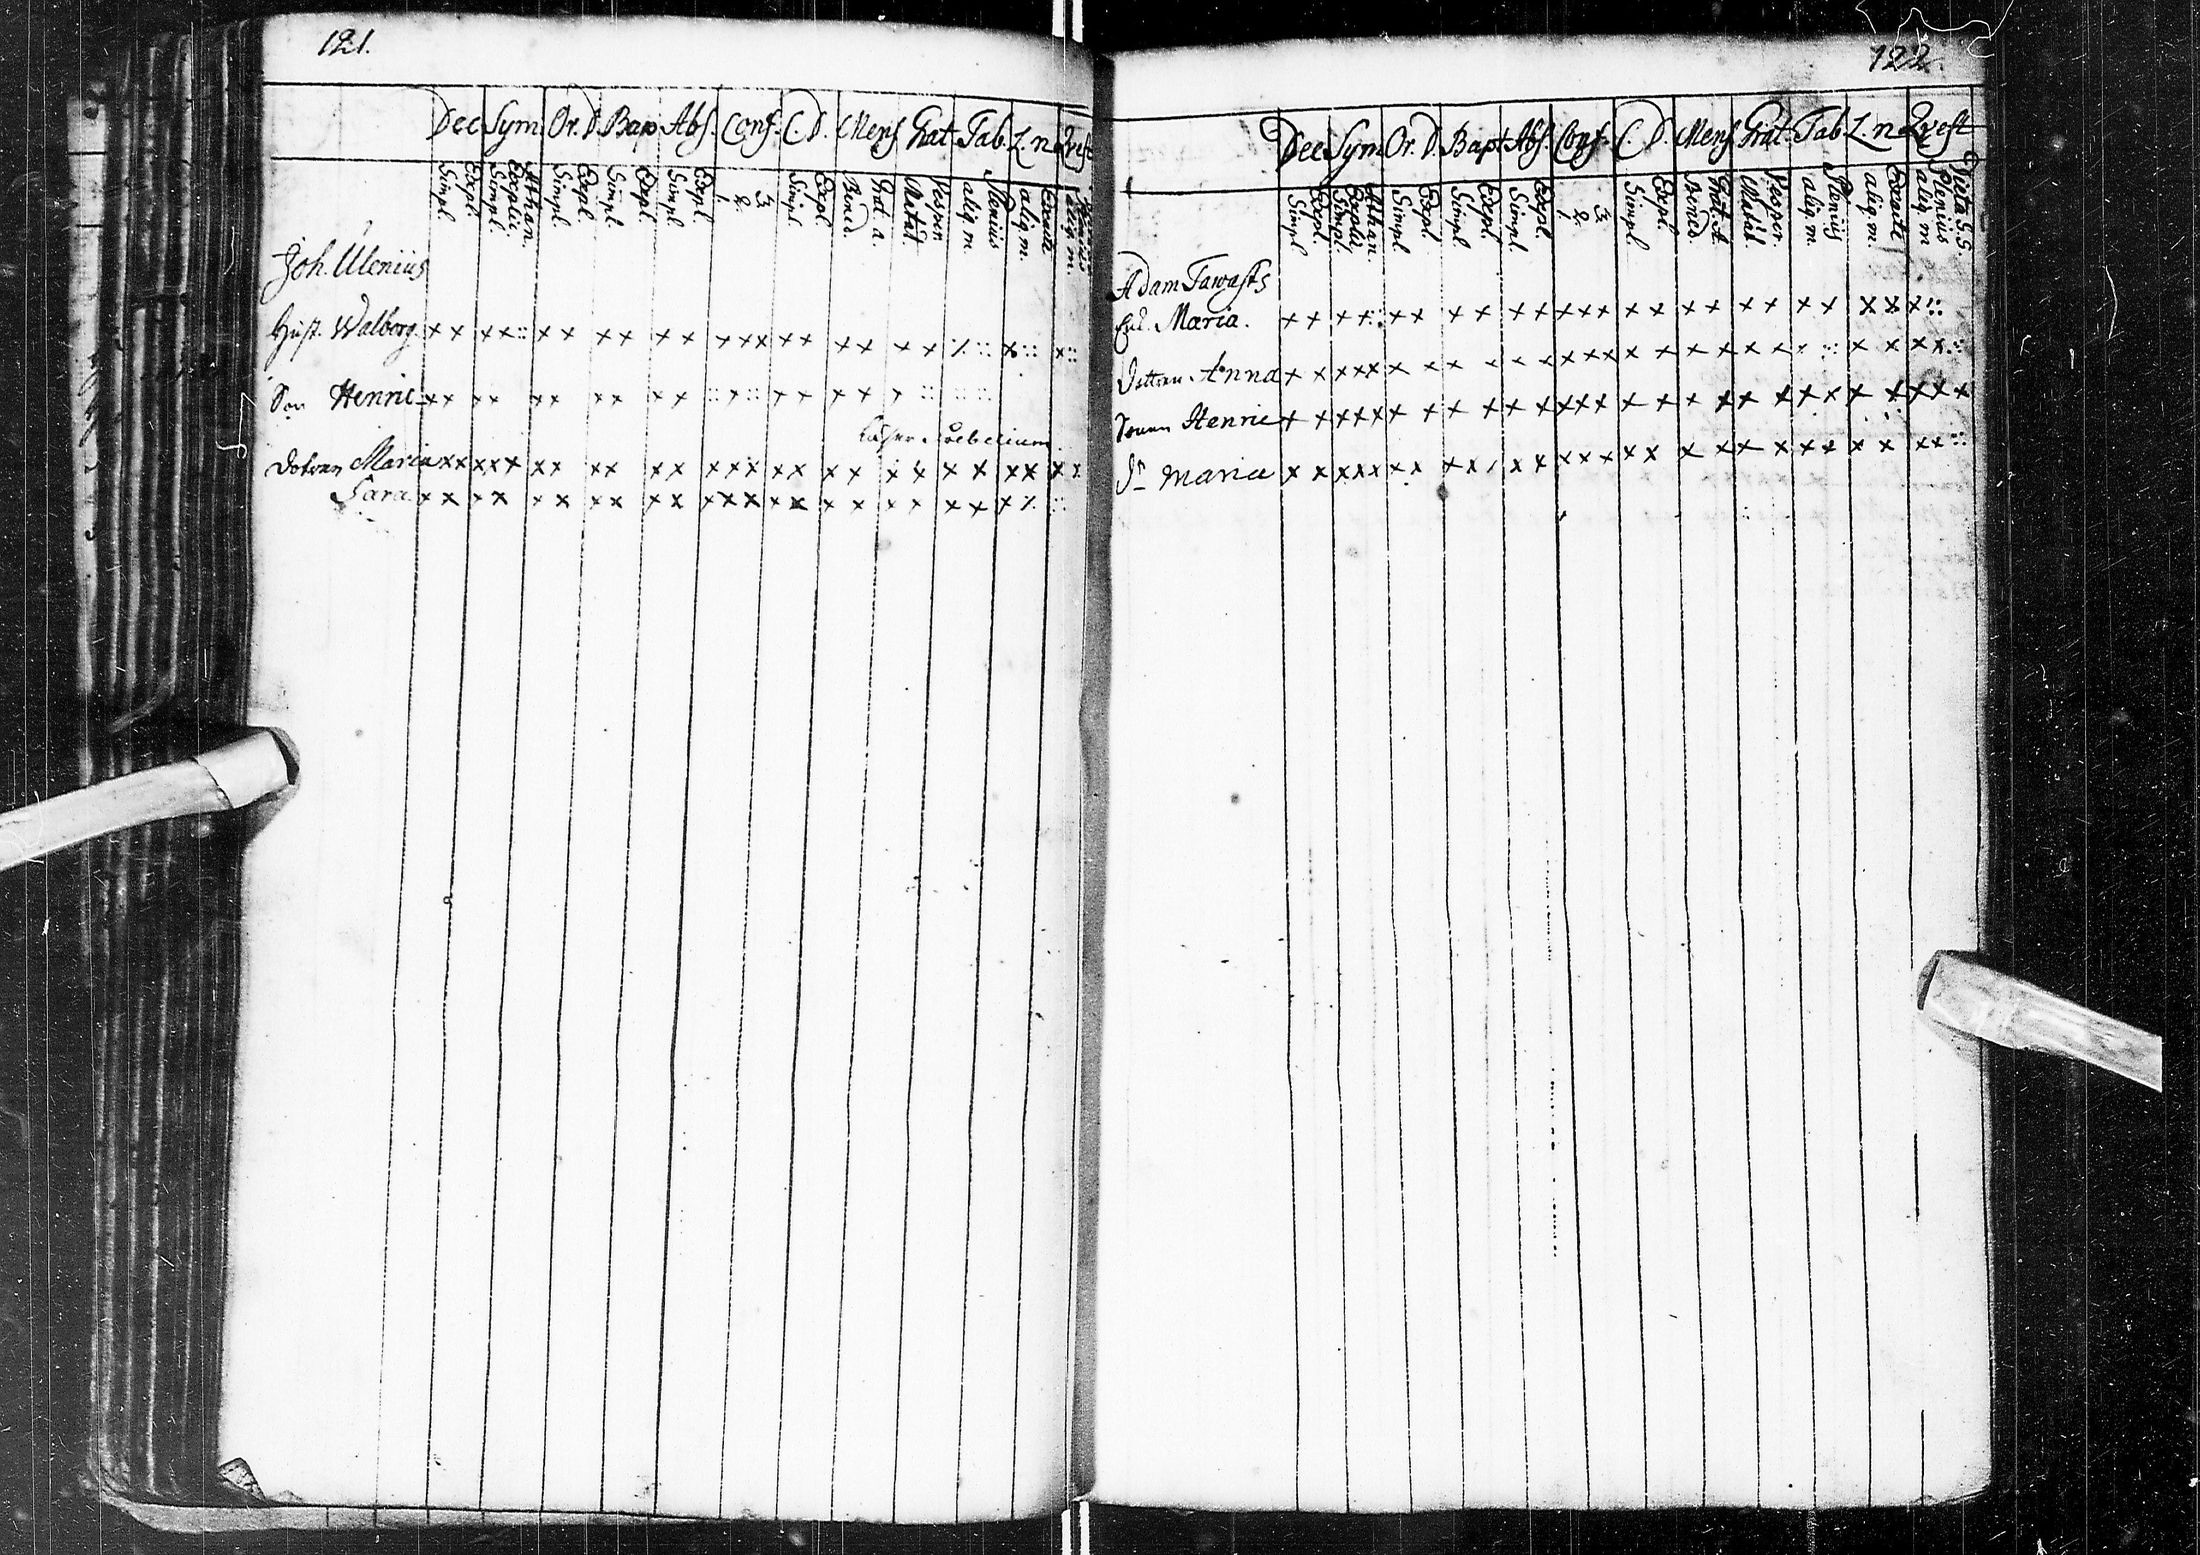 121.
Dec Sym. Or. D. Bap. Abs. Conf. C. D. Mens. Grat. Tab. L. n. Qvest
Simpl. Expl. Simpl. Explic. Athan. Simpl. Expl. Simpl. Expl. Simpl. Expl. 1. 2. 3. Simpl. Expl. Bened. Grat. a. Matut. Vesper. aliq. m. Plenius aliq. m. Exacte aliq. m.
Joh. Ulenius
Hust. Walborg. x x x x :: x x x x x x x x x x x x x x x ٪ :: x :: x ::
Son Henric x x x x x x x x x x :: x :: x x x x x :: :: ::
Dotran Maria x x x x x x x x x x x x x x x x x x x x x x x x x x
Sara x x x x x x x x x x x x x x x x x x x x x x ٪ ::
122.
Dec Sym. Or. D. Bapt. Abs. Conf. C. D. Mens. Grat. Tab. L. n. Qvest
Simpl. Expl. Simpl. Explic. Athan. Simpl. Expl. Simpl. Expl. Simpl. Expl. 1. 2. 3. Simpl. Expl. Bened. Grat. A. Matut. Vesper. aliq. m. Plenius aliq. m. Exacte aliq. m Plenius Dicta S. S.
Adam Tawasts
Maria. x x x x :: x x x x x x x x x x x x x x x x x x x x x ::
Anna x x x x x x x x x x x x x x x x x x x x x :: x x x x ::
Henric x x x x x x x x x x x x x x x x x x x x x x x x x x x
Maria x x x x x x x x x x x x x x x x x x x x x x x x x x ::